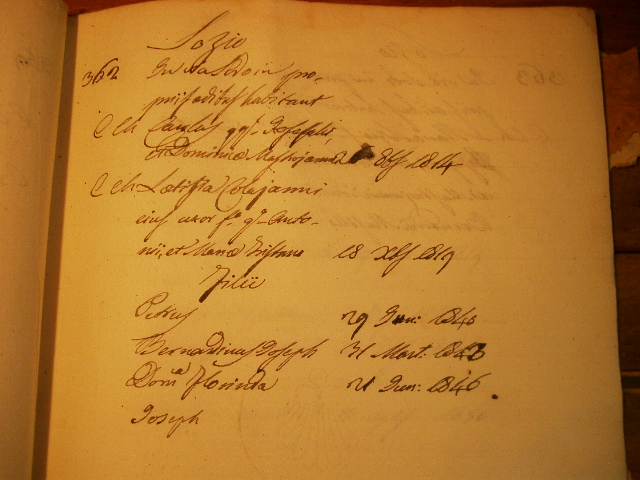 Lozio
362 In via
priis aedibus habitant
C Ch Carolus qm Josephi,
et Dominica 8bf 1814
C Ch Laetitia Colajanni
ejus uxor fa qm Anto-
nii, et Mariae 18 Xbf 1819
Filii
Petrus 29 Jun: 1840
Bernardinus Joseph 31 Mart: 1843
Doma Florinda 21 Jun: 1846.
Joseph